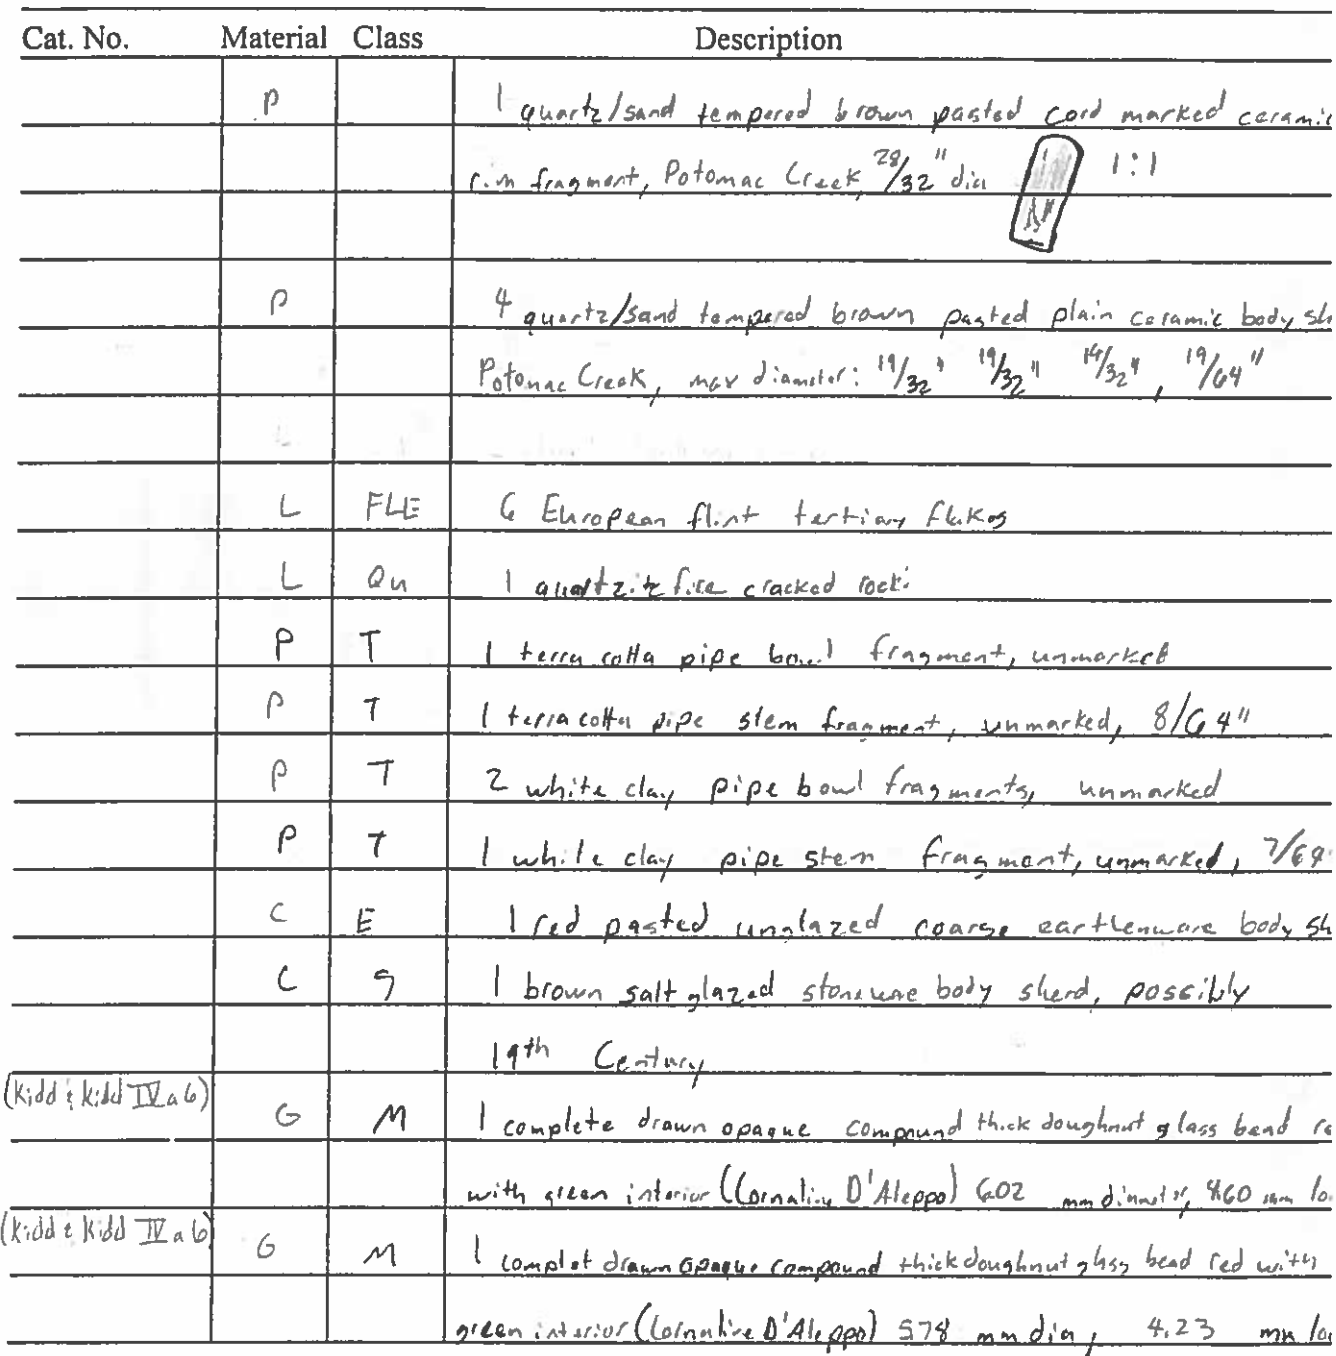 Cat. No. Material Class Description
P 1 quartz/sand tempered brown pasted cord marked ceramic
rim fragment, Potomac Creek 28/32" dia 1:1
P 4 quartz/sand tempered brown pasted plain ceramic body
Potomac Creek, max diameter: 19/32" 19/32" 14/32", 19/64"
L FLE 6 European flint tertiary flakes
L Qu 1 quartzite fire cracked rock
P T 1 terra cotta pipe bowl fragment, unmarked
P T 1 terra cotta pipe stem fragment, unmarked, 8/64"
P T 2 white clay pipe bowl fragments, unmarked
P T 1 white clay pipe stem fragment, unmarked, 7/64
C E 1 red pasted unglazed coarse earthenware body sh
C S 1 brown salt glazed stoneware body sherd, possibly
19th Century
(Kidd & Kidd IVa6) G M 1 complete drawn opaque compound thick doughnut glass bead re
with green interior (Cornaline D'Aleppo) 6.02 mm diameter, 4.60 mm lo
(Kidd & Kidd IVa6) G M 1 complet drawn opaque compound thick doughnut glass bead red with
green interior (Cornaline D'Aleppo) 5.78 mm dia, 4.23 mm lo